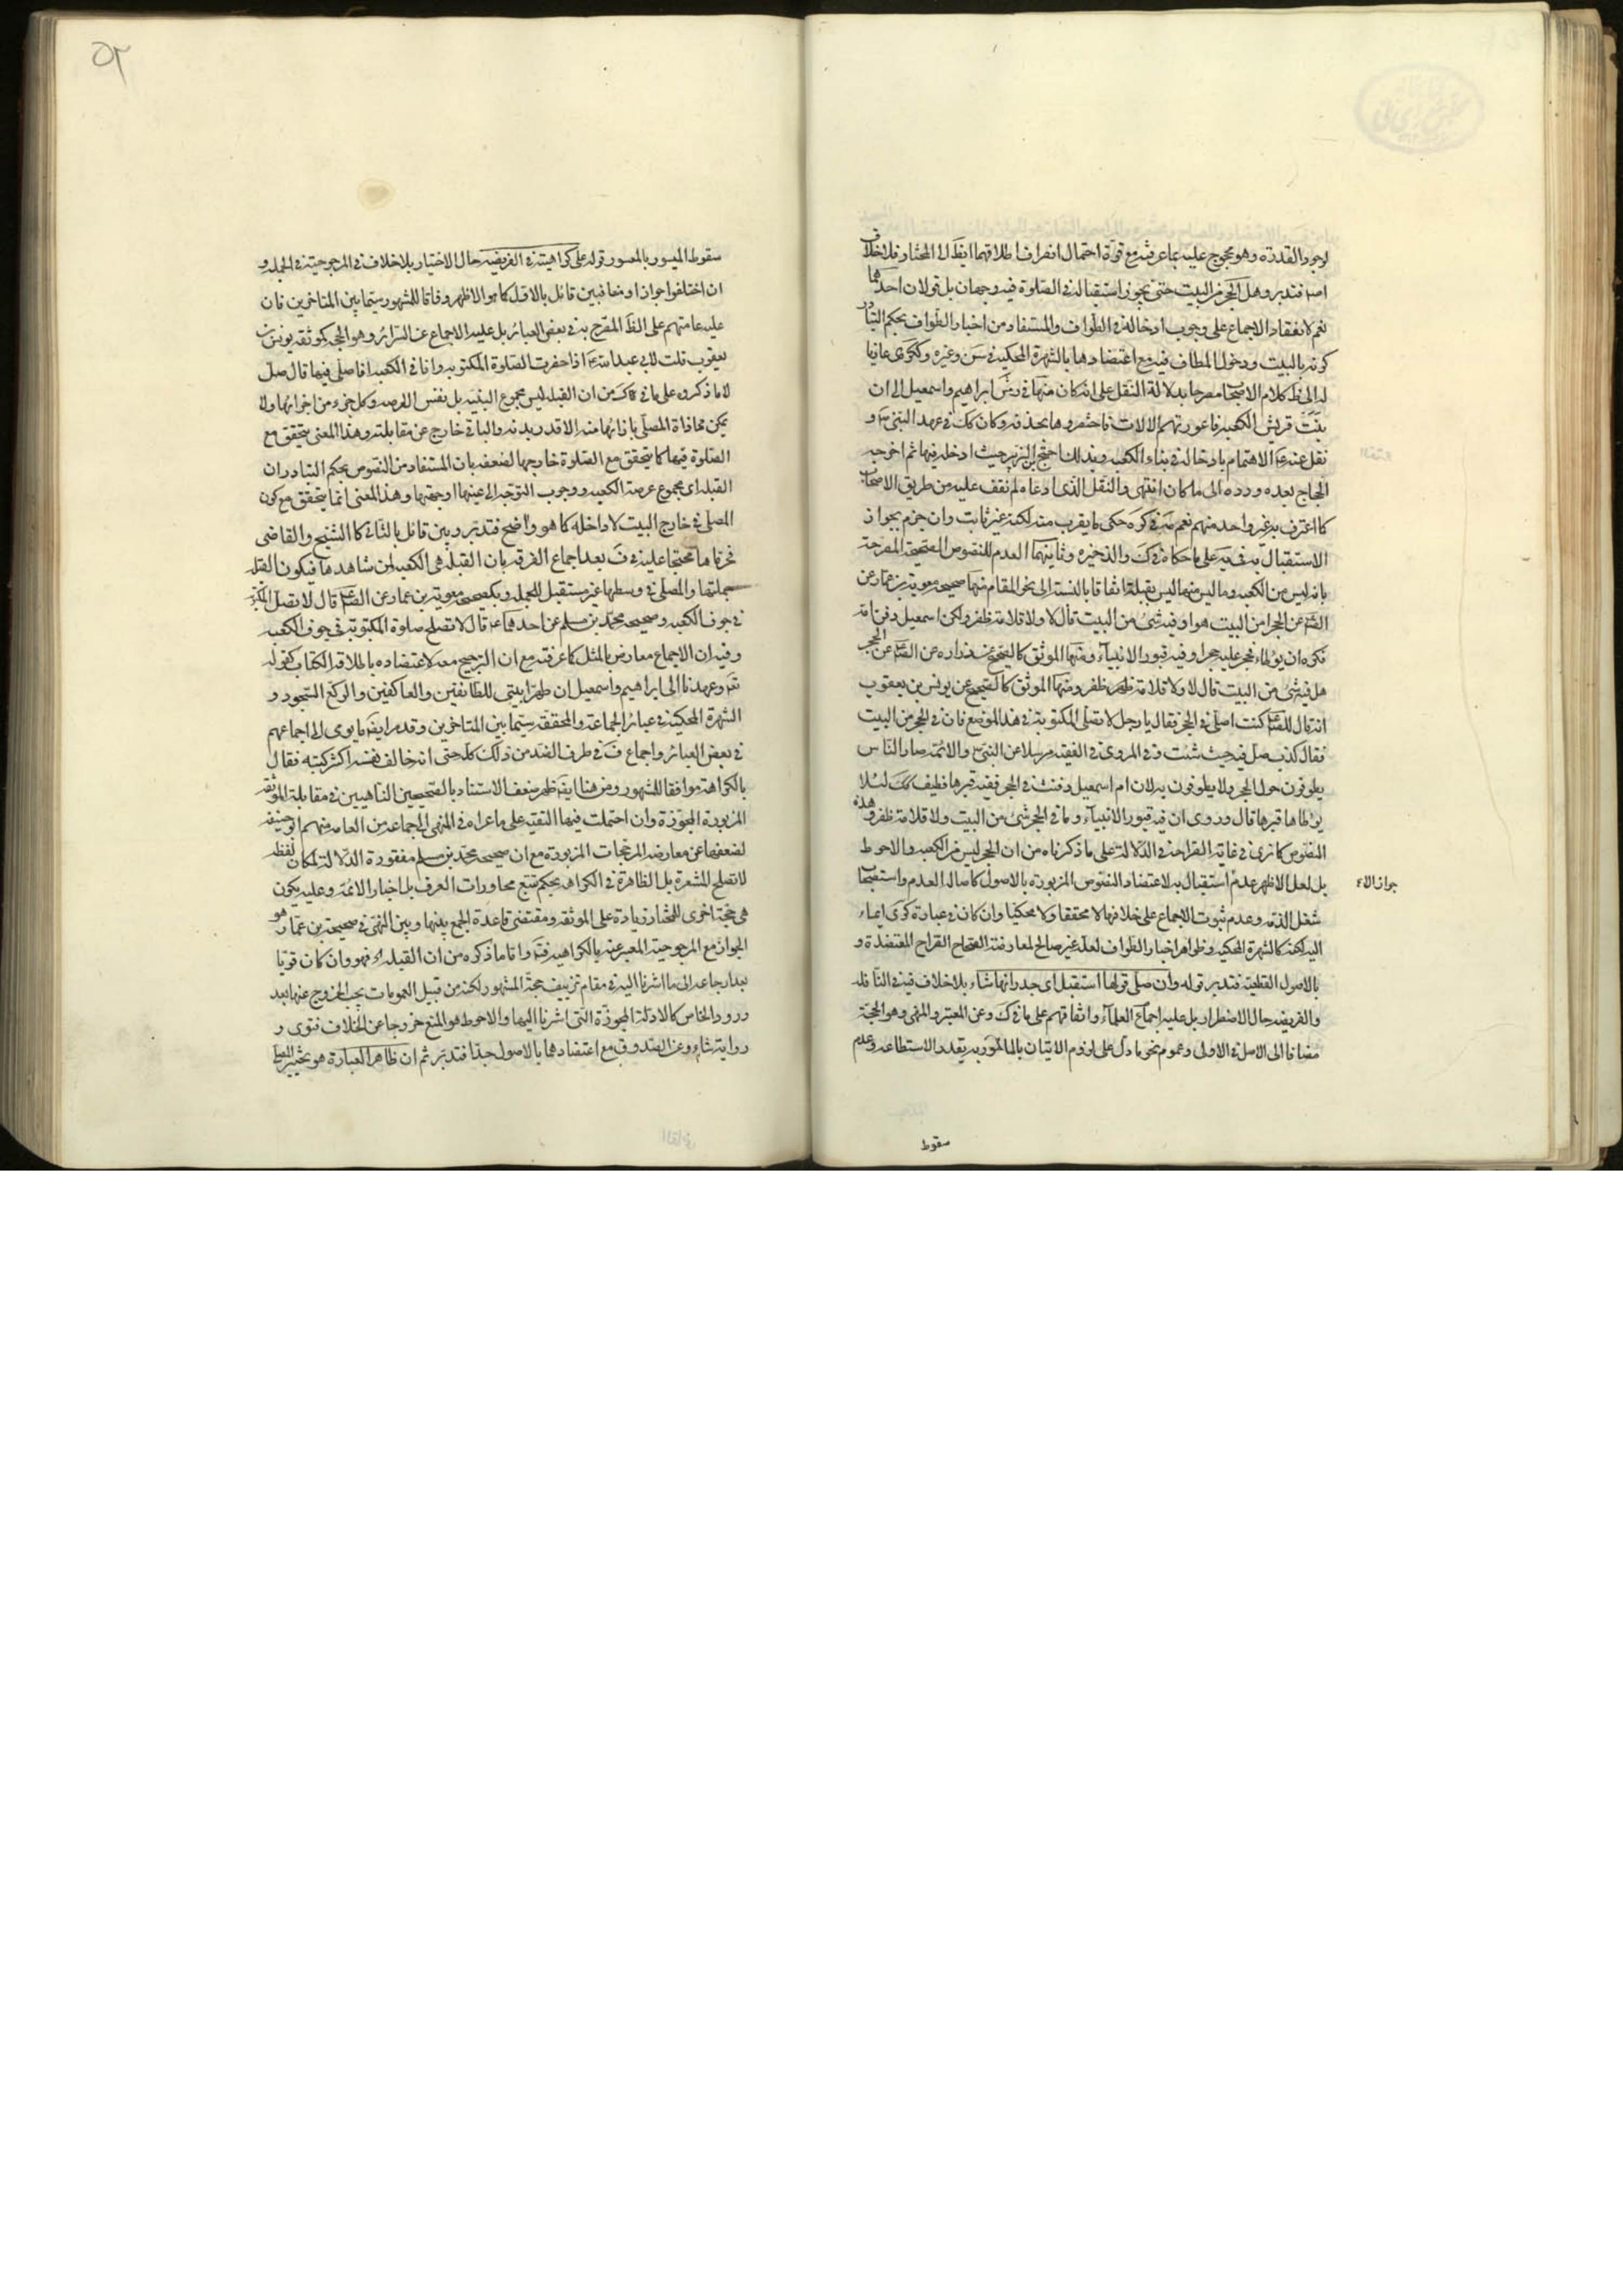 لوجود القدرة وهو محجوج عليه بما عرفت مع قوة احتمال انصراف اطلاقهما ايضا الى المختار فلا خلاف
فتدبر وهل الحجر من البيت حتى يجوز استقباله في الصلوة فيه وجهان بل قولان احدهما
نعم لانعقاد الاجماع على وجوب ادخاله في الطواف والمستفاد من اخبار الطواف بحكم التبادر
كونه بالبيت ودخول المطاف فيه مع اعتضادها بالشهرة المحكية في وغيره وكرى عازيا
له الى ظ كلام الاصحاب مصرحا بدلالة النقل على انه كان منها في زمن ابراهيم واسمعيل الى ان
بنت قريش الكعبة فاعوزتهم الالات فاختصروها بحذفه وكان كك في عهد النبي ص و
نقل عنه ص الاهتمام بادخاله في بناء الكعبة وبذلك احتج ابن الزبير حيث ادخله فيها ثم اخرجه
الحجاج بعده ورده الى ما كان انتهى والنقل الذي ادعاه لم نقف عليه من طريق الاصحاب
كما اعترف به غير واحد منهم نعم في كره حكى ما يقرب منه لكنه غير ثابت وان جزم بجواز
الاستقبال به فيه على ما حكاه في ك والذخيره وثانيهما العدم للنصوص الصحيحة المصرحة
بانه ليس من الكعبه وما ليس منها ليس بقبلة اتفاقا بالنسبة الى نحو المقام منها صحيحة معوية بن عمار عن
الصم عن الحجر امن البيت هو او فيه شئ من البيت قال لا ولا قلامة ظفر ولكن اسمعيل دفن امه
فكره ان يوطاء فحجر عليه حجرا وفيه قبور الانبياء ومنها الموثق كالصحيح عن زراره عن الصم عن الحجر
هل فيه شئ من البيت قال لا ولا قلامة ظفر ومنها الموثق كالصحيح عن يونس بن يعقوب
انه قال للصم كنت اصلي في الحجر فقال يا رجل لا تصلي المكتوبة في هذا الموضع فان في الحجر من البيت
فقال كذب صل فيه حيث شئت وفي المروي في الفقيه مرسلا عن النبي ص والائمة صار الناس
يطوفون حول الحجر ولا يطوفون به لان ام اسمعيل دفنت في الحجر ففيه قبرها فطيف كك لئلا
يوطا قبرها قال وروي ان فيه قبور الانبياء وما في الحجر شئ من البيت ولا قلامة ظفر وهذه
النصوص كما ترى في غاية الصراحة في الدلالة على ما ذكرناه من ان الحجر ليس من الكعبه والاحوط
بل لعل الاظهر عدم استقبال به لاعتضاد النصوص المزبوره بالاصول كاصالة العدم واستصحاب
جواز الاء
شغل الذمة وعدم ثبوت الاجماع على خلافها لا محققا ولا محكيا وان كان في عبارة كرى ايماء
اليه لكنه كالشهرة المحكيه وظواهر اخبار الطواف لعله غير صالح لمعارضة الصحاح الصراح المعتضدة و
بالاصول القطعية فتدبر قوله وان صلى قولها استقبل اي جدرانها شاء بلا خلاف فيه في النافلة
والفريضة حال الاضطرار بل عليه اجماع العلماء واتفاقهم على ما في ك وعن المعتبر والمنهى وهو الحجة
مضافا الى الاصل في الاولى وعموم نحو ما دل على لزوم الاتيان بالمامور به بقدر الاستطاعه وعدم
سقوط
٥٢
سقوط الميسور بالمعسور قوله على كراهية في الفريضه حال الاختيار بلا خلاف في المرجوحية في الجمله و
ان اختلفوا جوازا ومنعا فبين قائل بالاول كما هو الاظهر وفاقا للمشهور سيما بين المتاخرين فان
عليه عامتهم على الظ المصرح به في بعض العبائر بل عليه الاجماع عن السرائر وهو الحجة كموثقة يونس بن
يعقوب قلت لابي عبد الله ع اذا حضرت الصلوة المكتوبه وانا في الكعبه افاصلي فيها قال صل
لا ما ذكروه على ما في ك من ان القبله ليس مجموع البنيه بل نفس العرصه وكل جزء من اجزائها ولا
يمكن محاذاة المصلي بازائها منه الا قدر بدنه والباقي خارج عن مقابلته وهذا المعنى يتحقق مع
الصلوة فيها كما يتحقق مع الصلوة خارجها لضعفه بان المستفاد من النصوص بحكم التبادر ان
القبله اي مجموع عرصة الكعبه ووجوب التوجه الى عينها او جهتها وهذا المعنى انما يتحقق مع كون
المصلي في خارج البيت لا داخله كما هو واضح فتدبر وبين قائل بالثاني كالشيخ والقاضي
فحرماها محتجا عليه في ف بعد اجماع الفرقه بان القبلة هي الكعبه لمن شاهدها فيكون القبله
جملتها والمصلي في وسطها غير مستقبل للجمله وبصحيحة معوية بن عمار عن الصم قال لا تصل المكتوبة
في جوف الكعبه وصحيحه محمد بن مسلم عن احدهما ع قال لا تصلح صلوة المكتوبة في جوف الكعبه
وفيه ان الاجماع معارض بالمثل كما عرفته مع ان الترجيح معه لاعتضاده باطلاق الكتاب كقوله
تعم وعهدنا الى ابراهيم واسمعيل ان طهرا بيتي للطائفين والعاكفين والركع السجود و
الشهرة المحكيه في عبائر الجماعة والمحققه سيما بين المتاخرين وقد مر ايضا ما يومي الى اجماعهم
في بعض العبائر واجماع ف في طرف الضد من ذلك كله حتى انه خالف نفسه اكثر كتبه فقال
بالكراهة موافقا للمشهور ومن هنا ايضا ظهر ضعف الاستناد بالصحيحين الناهيين في مقابلة الموثقه
المزبورة المجوزة وان احتملت فيها التقيه على ما عزاه في المنهى الى جماعه من العامه منهم ابو حنيفه
لضعفها عن معارضه المرجحات المزبورة مع ان صحيحه محمد بن مسلم مفقودة الدلالة لمكان لفظه
لا تصلح المشعرة بل الظاهرة في الكراهه بحكم تتبع محاورات العرف بل اخبار الائمة وعليه يكون
هي حجة اخرى للمختار زيادة على الموثقه ومقتضى قاعدة الجمع بينها وبين النهي في صحيحه بن عمار هو
الجواز مع المرجوحية المعبر عنه بالكراهيه واما ما ذكره من ان القبله اه فهو وان كان قويا
بعد ارجاعه الى ما اشرنا اليه في مقام تزييف حجة المشهور لكنه من قبيل العمومات يجب الخروج عنها بعد
ورود الخاص كالادلة المجوزة التي اشرنا اليها والاحوط هو المنع خروجا عن الخلاف فتوى و
رواية مع اعتضادهما بالاصول جدا فتدبر ثم ان ظاهر العبارة هو تخيير المصلي